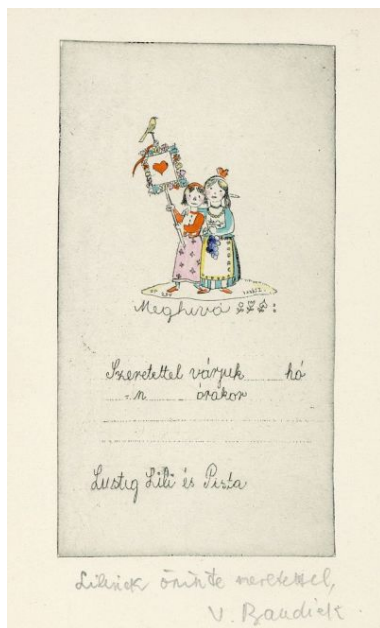 Meghivó :
Szeretettel várjuk ........ hó
......n ........ órakor
Lustig Lili és Pista
Lilinek őszinte szeretettel,
V.